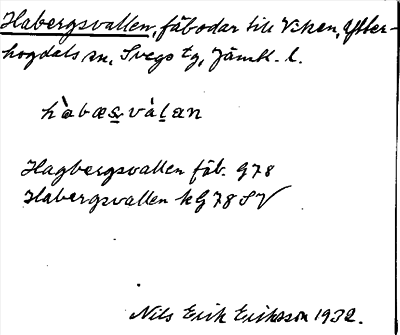 Habergsvallen, fäbodar till Viken, Ytter-
hogdals sn, Svegs tg, Jämtl. l.
hàbæsvàlan
Hagbergsvallen fäb. G78
Habergsvallen kG78SV
Nils Erik Eriksson 1932.